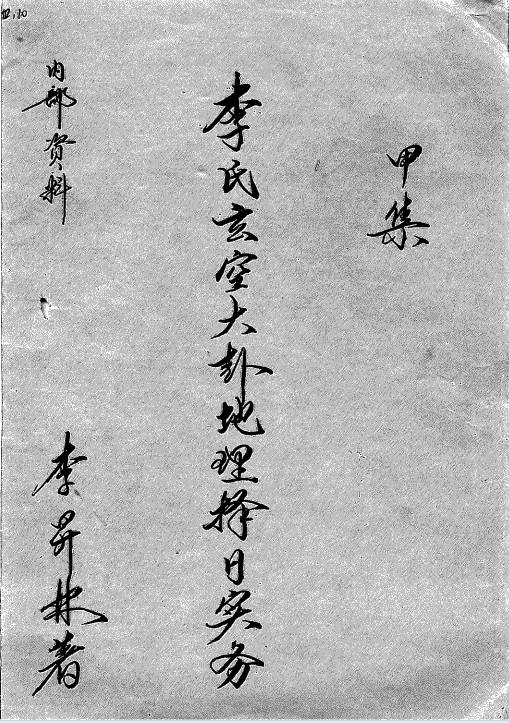 甲集
李氏玄空大卦地理择日实务
内部資料
李昇林著